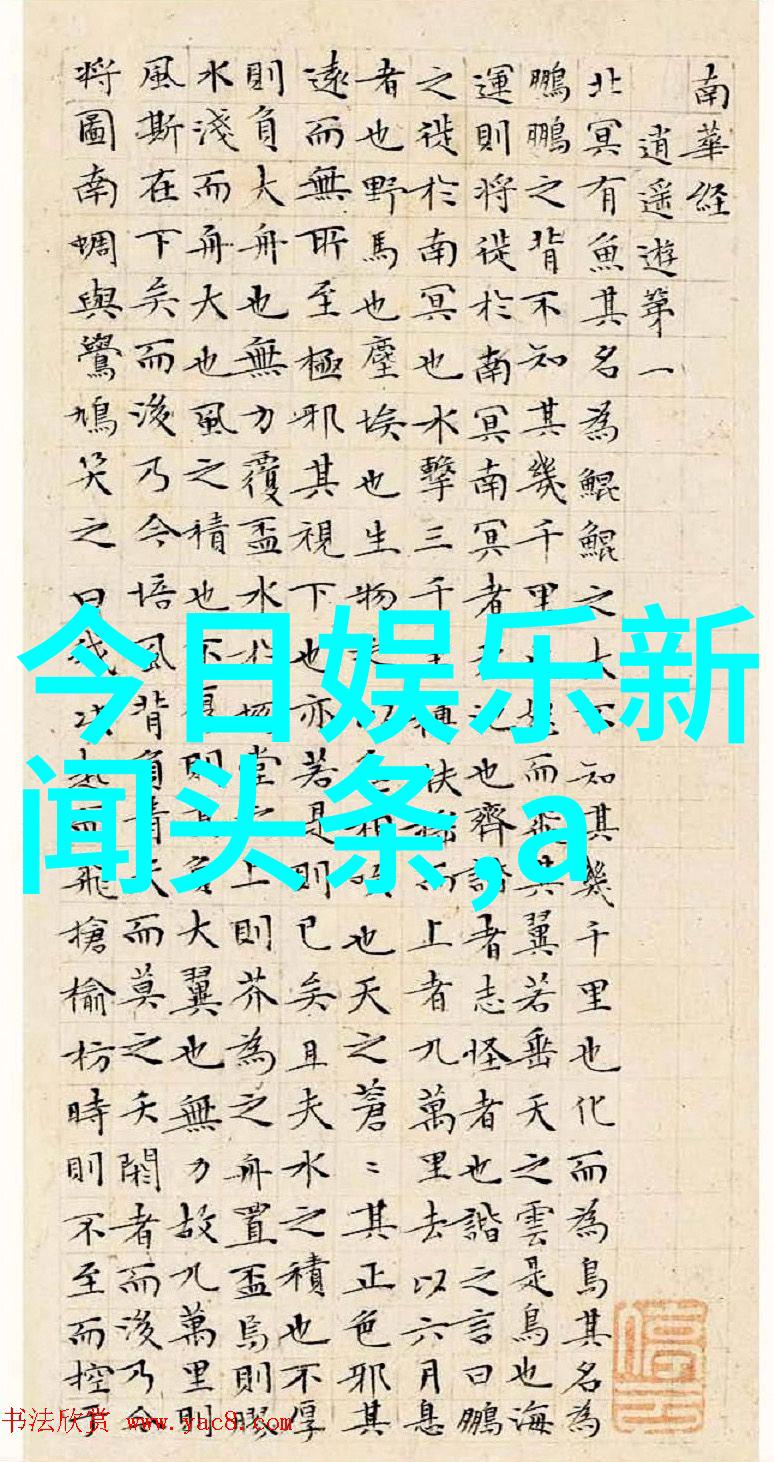 南華経
逍遥遊第一
北冥有魚其名為鯤鯤之大不知其幾千里也化而為鳥其名為
鵬鵬之背不知其幾千里也怒而飛其翼若垂天之雲是鳥也海
運則將徙於南冥南冥者天池也齊諧者志怪者也諧之言曰鵬
之徙於南冥也水擊三千里摶扶搖而上者九萬里去以六月息
者也野馬也塵埃也生物之以息相吹也天之蒼〻其正色邪其
遠而無所至極邪其視下也亦若是則已矣且夫水之積也不厚
則負大舟也無力覆盃水於坳堂之上則芥為之舟置盃焉則膠
水淺而舟大也風之積也不厚則其負大翼也無力故九萬里則
風斯在下矣而後乃今培風背負青天而莫之夭閼者而後乃今
將圖南蜩與鷽鳩笑之曰我決起而飛槍榆枋時則不至而控於
今日娱乐新
闻头条,a
书法欣赏 www.yac8.com